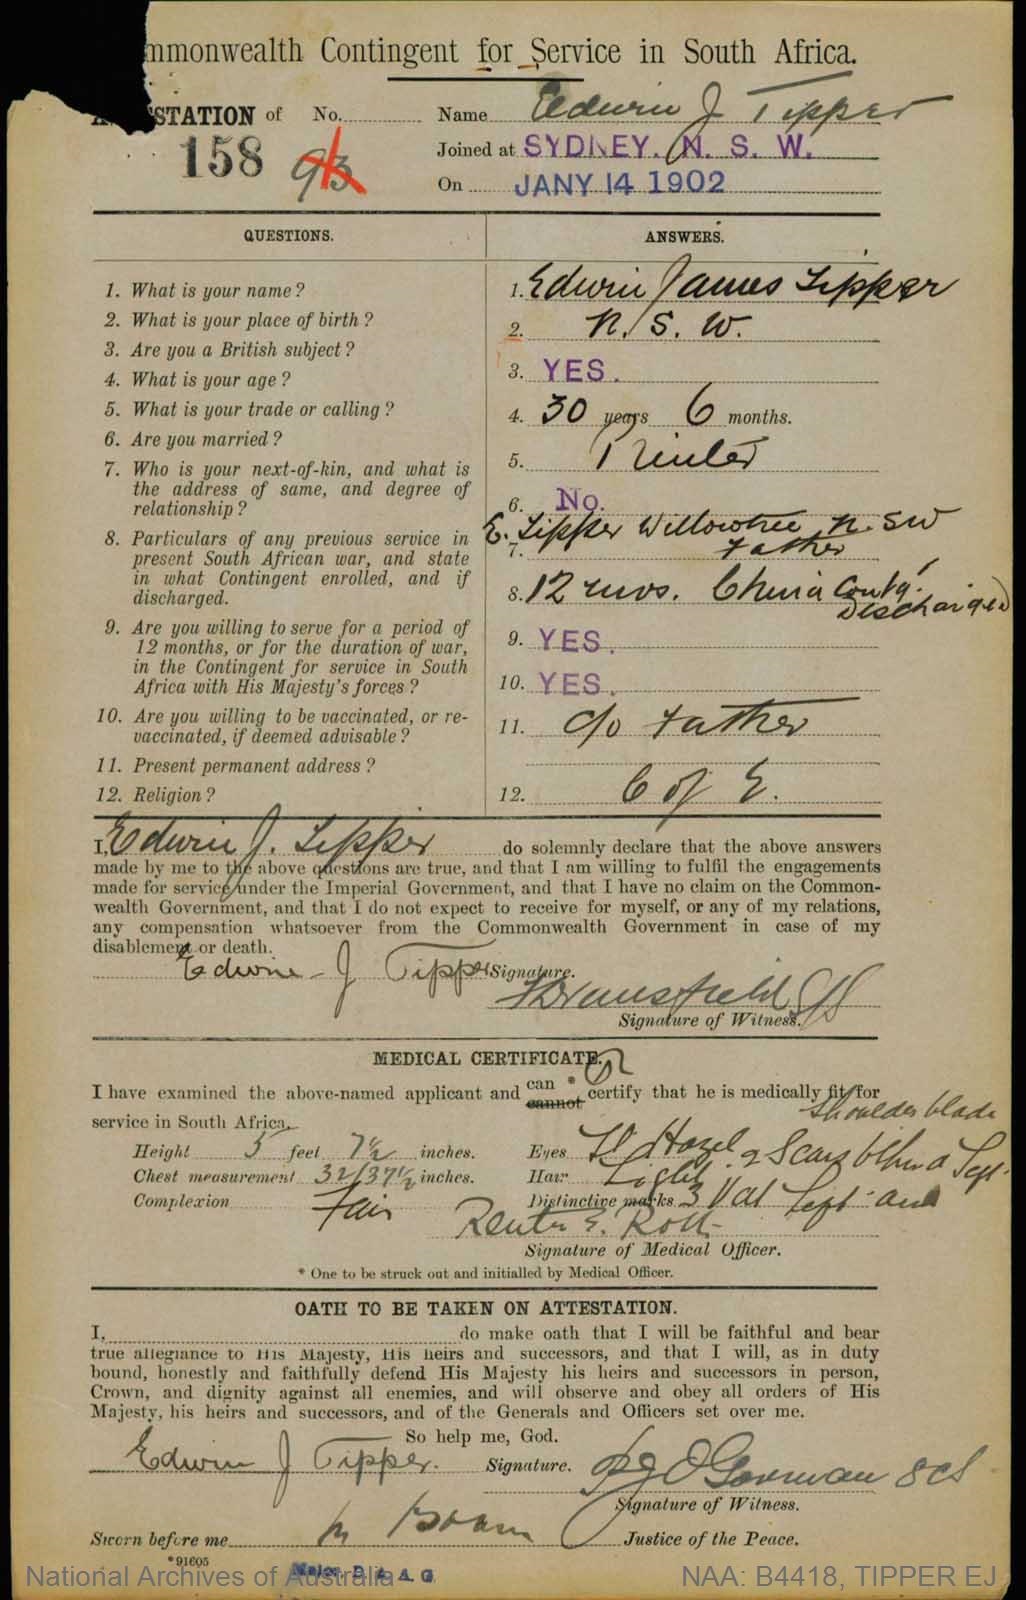 mmonwealth Contingent for Service in South Africa.
STATION of No. Name Edwin J Tipper
158 93 Joined at SYDNEY. N. S. W.
On JANY 14 1902
QUESTIONS. ANSWERS.
1. What is your name?
2. What is your place of birth?
3. Are you a British subject?
4. What is your age?
5. What is your trade or calling?
6. Are you married?
7. Who is your next-of-kin, and what is
the address of same, and degree of
relationship?
8. Particulars of any previous service in
present South African war, and state
in what Contingent enrolled, and if
discharged.
9. Are you willing to serve for a period of
12 months, or for the duration of war,
in the Contingent for service in South
Africa with His Majesty's forces?
10. Are you willing to be vaccinated, or re-
vaccinated, if deemed advisable?
11. Present permanent address?
12. Religion?
1. Edwin James Tipper
2. N. S. W.
3. YES.
4. 30 years 6 months.
5. Printer
6. No.
7. E. Tipper Willowtree N. SW
Father
8. 12 mos. China Contg.
Discharged
9. YES.
10. YES.
11. c/o Father
12. C of E.
I, Edwin J. Tipper do solemnly declare that the above answers
made by me to the above questions are true, and that I am willing to fulfil the engagements
made for service under the Imperial Government, and that I have no claim on the Common-
wealth Government, and that I do not expect to receive for myself, or any of my relations,
any compensation whatsoever from the Commonwealth Government in case of my
disablement or death.
Edwin J Tipper Signature.
Signature of Witness.
MEDICAL CERTIFICATE.
I have examined the above-named applicant and can * cannot certify that he is medically fit for
service in South Africa.
Height 5 feet 7½ inches.
Chest measurement 32/37½ inches.
Complexion Fair
Eyes Lt Hazel
Hair Light
Distinctive marks 3 Vac Left arm
2 Scars behind Left
shoulder blade
Reuter E. Roth
Signature of Medical Officer.
* One to be struck out and initialled by Medical Officer.
OATH TO BE TAKEN ON ATTESTATION.
I, do make oath that I will be faithful and bear
true allegiance to His Majesty, His heirs and successors, and that I will, as in duty
bound, honestly and faithfully defend His Majesty his heirs and successors in person,
Crown, and dignity against all enemies, and will observe and obey all orders of His
Majesty, his heirs and successors, and of the Generals and Officers set over me.
So help me, God.
Edwin J Tipper. Signature. O'Gorman
Signature of Witness.
Sworn before me Justice of the Peace.
*91605
Major. D. A. A. G.
National Archives of Australia NAA: B4418, TIPPER EJ